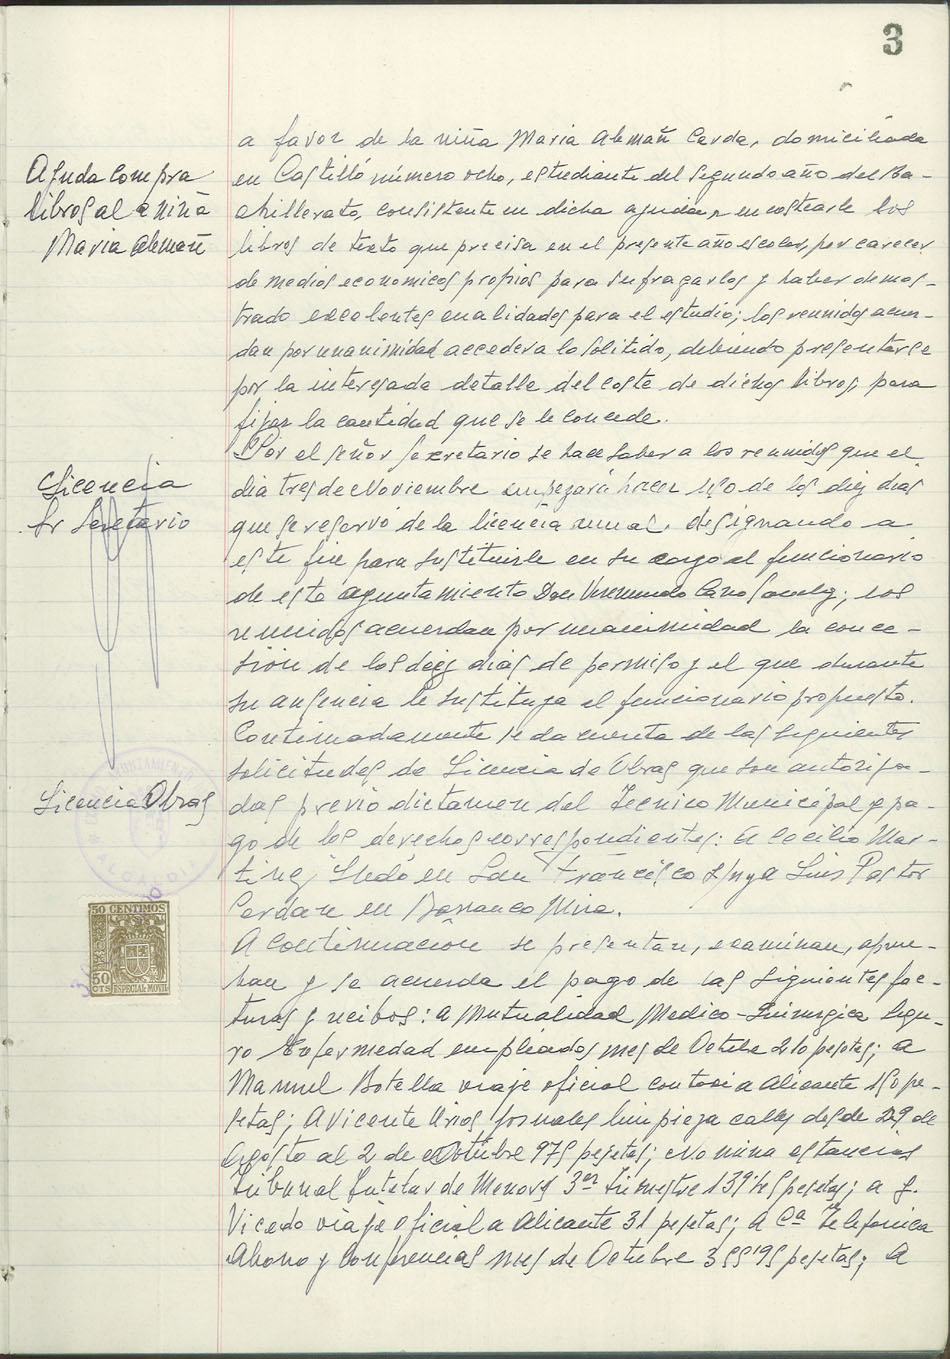 3
Ayuda compra
libros al a niña
Maria Alemañ
a favor de la niña Maria Alemañ Cerda, domiciliada
en Castilló número ocho, estudiante del segundo año del Ba-
chillerato, consistente en dicha ayuda, en costearle los
libros de texto que precisa en el presente año escolar, por carecer
de medios economicos propios para sufragarlos y haber demos-
trado excelentes cualidades para el estudio; los reunidos acuer-
dan por unanimidad acceder a lo solitido, debiendo presentarse
por la interesada detalle del coste de dichos libros, para
fijar la cantidad que se le concede.
Licencia
Sr Secretario
Por el señor Secretario se hace saber a los reunidos que el
dia tres de Noviembre empezará hacer uso de los diez dias
que se reservó de la licencia anual, designando a
este fin para sustituirle en su cargo al funcionario
de este ayuntamiento Don Veremundo Cano; los
reunidos acuerdan por unanimidad la conce-
sión de los diez dias de permiso y el que durante
su ausencia le sustituya el funcionario propuesto.
Licencia Obras
Continuadamente se da cuenta de las siguientes
solicitudes de Licencia de Obras que son autoriza-
das previo dictamen del Tecnico Municipal y pa-
go de los derechos correspondientes: A Cecilio Mar-
tinez Lledó en San Francisco s/n y a Luis Pastor
Cerdan en Barranco Mina.
AYUNTAMIENTO
50 CENTIMOS
50
CTS
ESPECIAL MOVIL
A continuación se presentan, examinan, aprue-
ban y se acuerda el pago de las siguientes fac-
turas y recibos: a Mutualidad Medico-Quirurgica Segu-
ro Enfermedad empleados mes de Octubre 210 pesetas; a
Manuel Botella viaje oficial con taxi a Alicante 150 pe-
setas; A Vicente Rios, jornales limpieza calles desde 29 de
Agosto al 2 de Octubre 975 pesetas; Nomina estancias
Tribunal Tutelar de Menores 3er trimestre 139'45 pesetas; a J.
Vicedo viaje oficial a Alicante 31 pesetas; A Cª Telefonica
Abono y conferencias mes de Octubre 355'95 pesetas; A